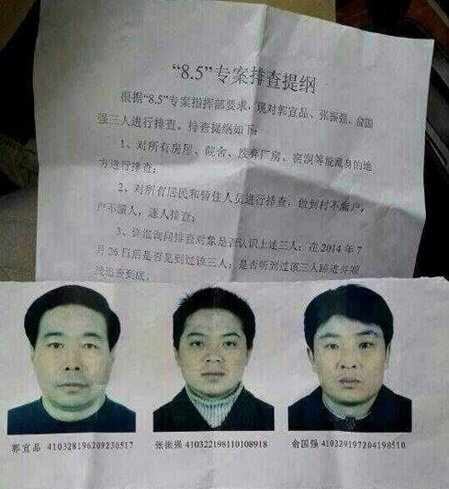 “8.5”专案排查提纲
根据“8.5”专案指挥部要求，现对郭宜品、张振强、俞国
强三人进行排查。排查提纲如下：
1、对所有房屋、院舍、废弃厂房、窑洞等能藏身的地
方进行排查；
2、对所有居民和暂住人员进行排查，做到村不漏户，
户不漏人，逐人排查；
3、详细询问排查对象是否认识上述三人；在 2014 年 7
月 26 日前是否见到过该三人；是否听到过该三人踪迹并顺
线追查到底。
郭宜品 410328196209230517 张振强 410322198110108918 俞国强 410329197204190510